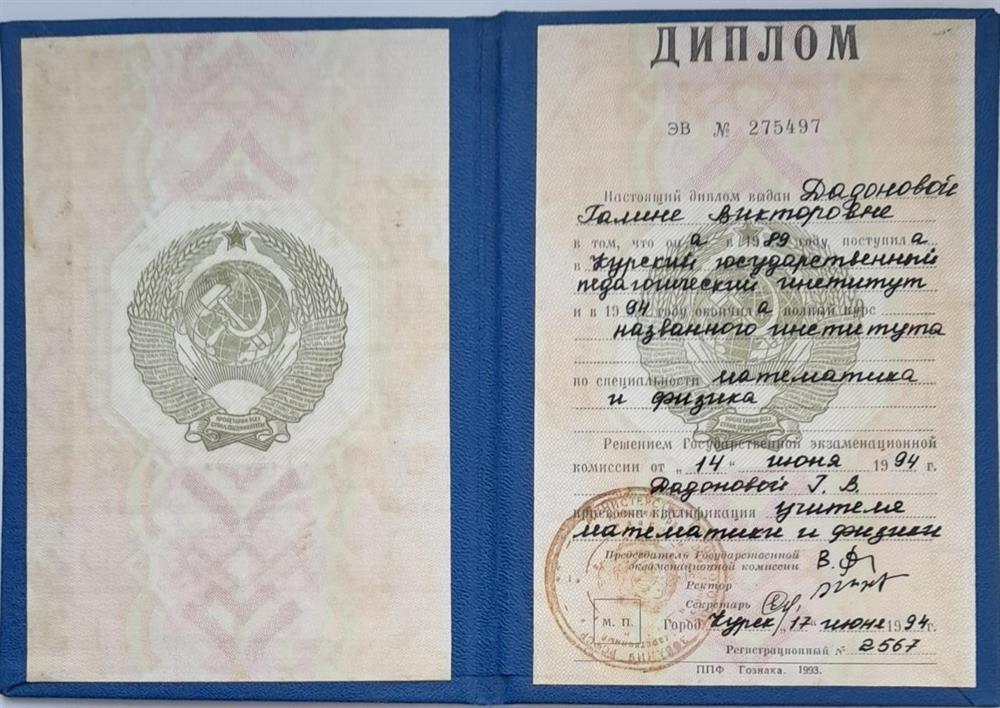 ПРОЛЕТАРИИ ВСЕХ
СТРАН, СОЕДИНЯЙТЕСЬ!
ДИПЛОМ
ЭВ № 275497
Настоящий диплом выдан Дадоновой
Галине Викторовне
в том, что он а в 19 89 году поступил а
в Курский государственный
педагогический институт
и в 19 94 году окончил а полный курс
названного института
по специальности математика
и физика
Решением Государственной экзаменационной
комиссии от „ 14 “ июня 19 94 г.
Дадоновой Г. В.
присвоена квалификация учителя
математики и физики
Председатель Государственной
экзаменационной комиссии
Ректор
Секретарь
М. П.
Город Курск „ 17 “ июня 19 94 г.
Регистрационный № 2567
ППФ Гознака. 1993.